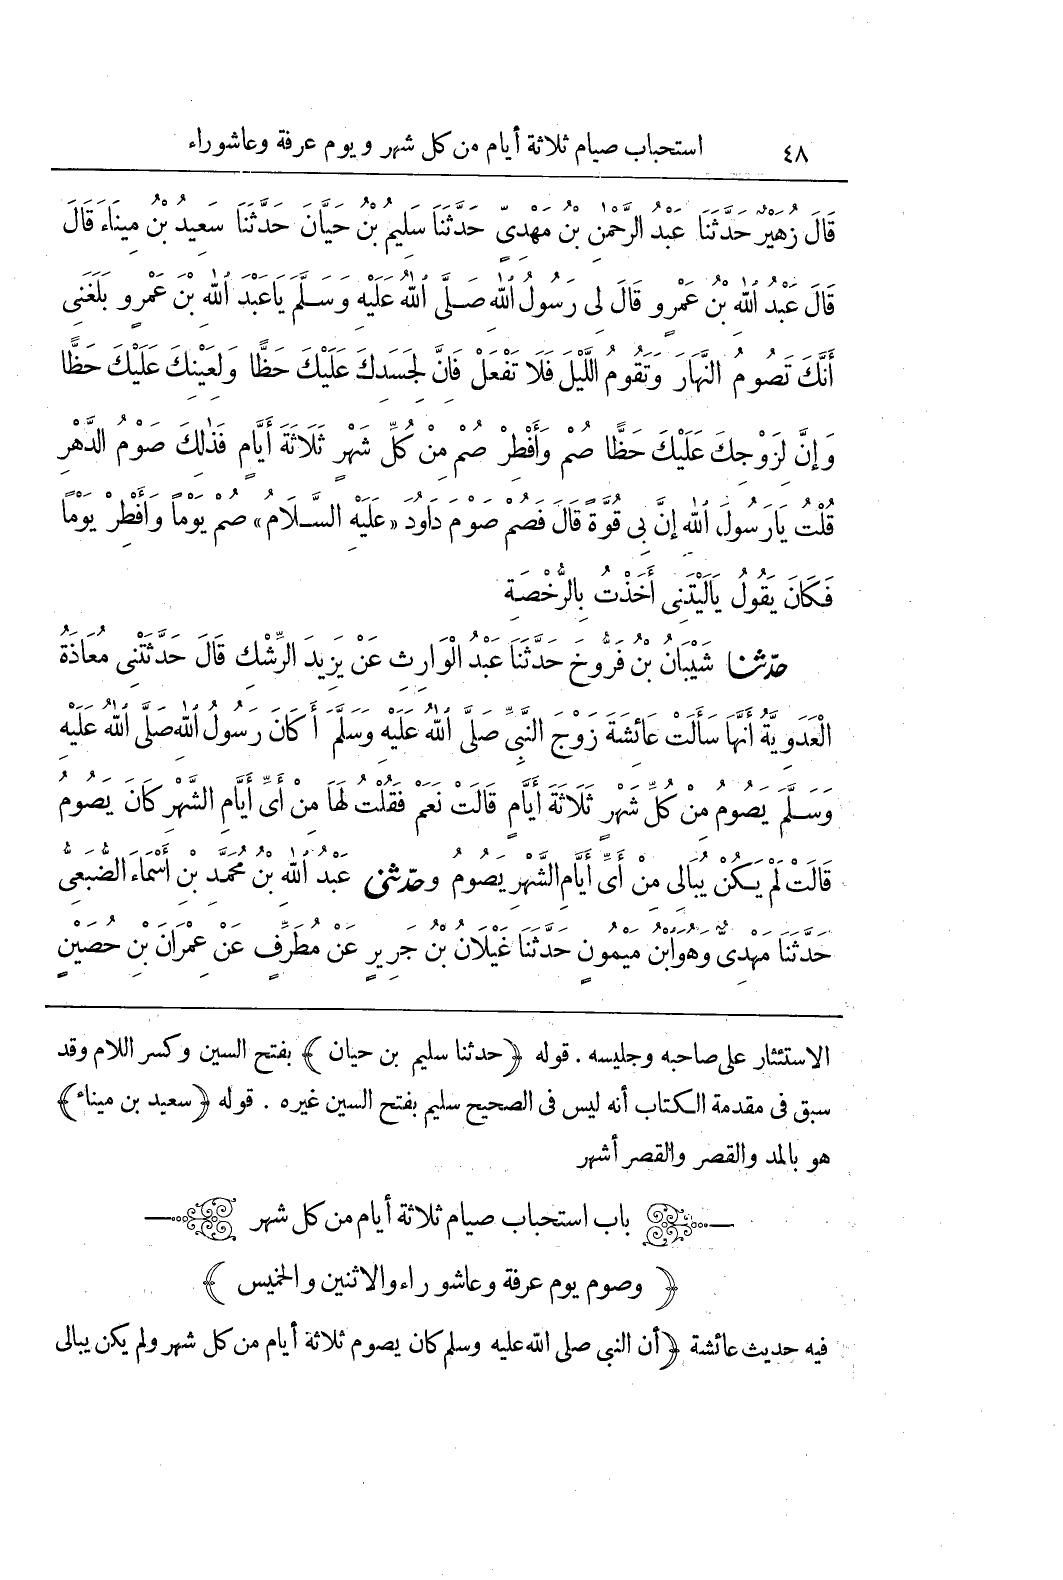 ٤٨ استحباب صيام ثلاثة أيام من كل شهر ويوم عرفة وعاشوراء
قَالَ زُهَيْرٌ حَدَّثَنَا عَبْدُ الرَّحْمٰنِ بْنُ مَهْدِيٍّ حَدَّثَنَا سَلِيمُ بْنُ حَيَّانَ حَدَّثَنَا سَعِيدُ بْنُ مِينَاءَ قَالَ
قَالَ عَبْدُ اللهِ بْنُ عَمْرٍو قَالَ لِى رَسُولُ اللهِ صَلَّى اللهُ عَلَيْهِ وَسَلَّمَ يَاعَبْدَ اللهِ بْنَ عَمْرٍو بَلَغَنِى
أَنَّكَ تَصُومُ النَّهَارَ وَتَقُومُ اللَّيْلَ فَلَا تَفْعَلْ فَإِنَّ لِجَسَدِكَ عَلَيْكَ حَظًّا وَلِعَيْنِكَ عَلَيْكَ حَظًّا
وَإِنَّ لِزَوْجِكَ عَلَيْكَ حَظًّا صُمْ وَأَفْطِرْ صُمْ مِنْ كُلِّ شَهْرٍ ثَلَاثَةَ أَيَّامٍ فَذٰلِكَ صَوْمُ الدَّهْرِ
قُلْتُ يَارَسُولَ اللهِ إِنَّ بِى قُوَّةً قَالَ فَصُمْ صَوْمَ دَاوُدَ «عَلَيْهِ السَّلَامُ» صُمْ يَوْمًا وَأَفْطِرْ يَوْمًا
فَكَانَ يَقُولُ يَالَيْتَنِى أَخَذْتُ بِالرُّخْصَةِ
حدّثنا شَيْبَانُ بْنُ فَرُّوخَ حَدَّثَنَا عَبْدُ الْوَارِثِ عَنْ يَزِيدَ الرِّشْكِ قَالَ حَدَّثَتْنِى مُعَاذَةُ
الْعَدَوِيَّةُ أَنَّهَا سَأَلَتْ عَائِشَةَ زَوْجَ النَّبِىِّ صَلَّى اللهُ عَلَيْهِ وَسَلَّمَ أَكَانَ رَسُولُ اللهِ صَلَّى اللهُ عَلَيْهِ
وَسَلَّمَ يَصُومُ مِنْ كُلِّ شَهْرٍ ثَلَاثَةَ أَيَّامٍ قَالَتْ نَعَمْ فَقُلْتُ لَهَا مِنْ أَىِّ أَيَّامِ الشَّهْرِ كَانَ يَصُومُ
قَالَتْ لَمْ يَكُنْ يُبَالِى مِنْ أَىِّ أَيَّامِ الشَّهْرِ يَصُومُ وحدّثنى عَبْدُ اللهِ بْنُ مُحَمَّدِ بْنِ أَسْمَاءَ الضُّبَعِىُّ
حَدَّثَنَا مَهْدِىٌّ وَهُوَ ابْنُ مَيْمُونٍ حَدَّثَنَا غَيْلَانُ بْنُ جَرِيرٍ عَنْ مُطَرِّفٍ عَنْ عِمْرَانَ بْنِ حُصَيْنٍ
الاستئثار على صاحبه وجليسه . قوله ﴿حدثنا سليم بن حيان﴾ بفتح السين وكسر اللام وقد
سبق فى مقدمة الكتاب أنه ليس فى الصحيح سليم بفتح السين غيره . قوله ﴿سعيد بن ميناء﴾
هو بالمد والقصر والقصر أشهر
باب استحباب صيام ثلاثة أيام من كل شهر
﴿وصوم يوم عرفة وعاشوراء والاثنين والخميس﴾
فيه حديث عائشة ﴿أن النبى صلى الله عليه وسلم كان يصوم ثلاثة أيام من كل شهر ولم يكن يبالى